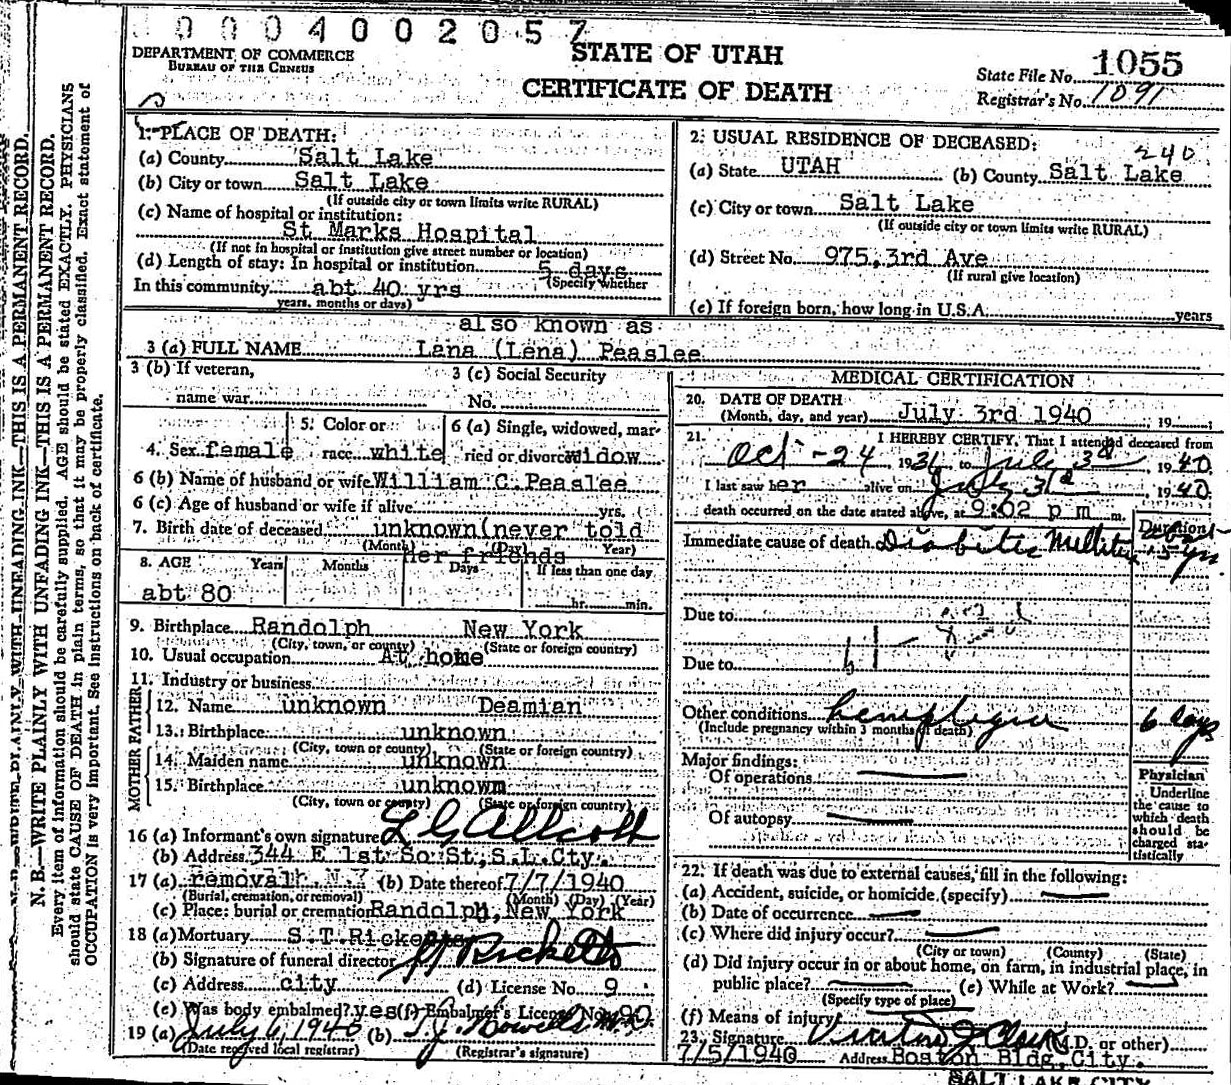 0004002057
DEPARTMENT OF COMMERCE
BUREAU OF THE CENSUS
STATE OF UTAH
CERTIFICATE OF DEATH
State File No. 1055
Registrar's No. 1091
N. B.—WRITE PLAINLY WITH UNFADING INK—THIS IS A PERMANENT RECORD.
Every item of information should be carefully supplied. AGE should be stated EXACTLY. PHYSICIANS
should state CAUSE OF DEATH in plain terms, so that it may be properly classified. Exact statement of
OCCUPATION is very important. See instructions on back of certificate.
1. PLACE OF DEATH:
(a) County Salt Lake
(b) City or town Salt Lake
(If outside city or town limits write RURAL)
(c) Name of hospital or institution:
St Marks Hospital
(If not in hospital or institution give street number or location)
(d) Length of stay: In hospital or institution 5 days
(Specify whether
In this community abt 40 yrs
years, months or days)
2. USUAL RESIDENCE OF DECEASED:
240
(a) State UTAH (b) County Salt Lake
(c) City or town Salt Lake
(If outside city or town limits write RURAL)
(d) Street No. 975 3rd Ave
(If rural give location)
(e) If foreign born, how long in U.S.A. years
also known as
3 (a) FULL NAME Lana (Lena) Peaslee
3 (b) If veteran,
name war
3 (c) Social Security
No.
4. Sex female
5. Color or
race white
6 (a) Single, widowed, mar-
ried or divorced widow
6 (b) Name of husband or wife William C. Peaslee
6 (c) Age of husband or wife if alive yrs.
7. Birth date of deceased unknown(never told
(Month) (Day) Year)
her friends
8. AGE Years Months Days If less than one day
abt 80 hr. min.
9. Birthplace Randolph New York
(City, town, or county) (State or foreign country)
10. Usual occupation At home
11. Industry or business
FATHER
12. Name unknown Deamian
13. Birthplace unknown
(City, town or county) (State or foreign country)
MOTHER
14. Maiden name unknown
15. Birthplace unknown
(City, town or county) (State or foreign country)
16 (a) Informant's own signature L G Allcott
(b) Address 344 E 1st So St, S.L.Cty.
17 (a) removal N.Y (b) Date thereof 7/7/1940
(Burial, cremation, or removal) (Month) (Day) (Year)
(c) Place: burial or cremation Randolph, New York
18 (a) Mortuary S.T.Ricketts
(b) Signature of funeral director Ricketts
(c) Address city (d) License No. 9
(e) Was body embalmed? yes (f) Embalmer's License No. 90
19 (a) July 6, 1940 (b)
(Date received local registrar) (Registrar's signature)
MEDICAL CERTIFICATION
20. DATE OF DEATH
(Month, day, and year) July 3rd 1940 19
21. I HEREBY CERTIFY, That I attended deceased from
Oct - 24 1936 to July 3d 1940
I last saw her alive on July 3rd 1940
death occurred on the date stated above, at 9:02 p m m.
Duration
Immediate cause of death Diabetes Mellitus about 15 yrs.
Due to
Due to 61
Other conditions hemiplegia 6 days
(Include pregnancy within 3 months of death)
Major findings:
Of operations
Of autopsy
Physician
Underline
the cause to
which death
should be
charged sta-
tistically
22. If death was due to external causes, fill in the following:
(a) Accident, suicide, or homicide (specify)
(b) Date of occurrence
(c) Where did injury occur?
(City or town) (County) (State)
(d) Did injury occur in or about home, on farm, in industrial place, in
public place? (e) While at Work?
(Specify type of place)
(f) Means of injury
23. Signature (M.D. or other)
7/5/1940 Address Boston Bldg, City.
SALT LAKE CITY